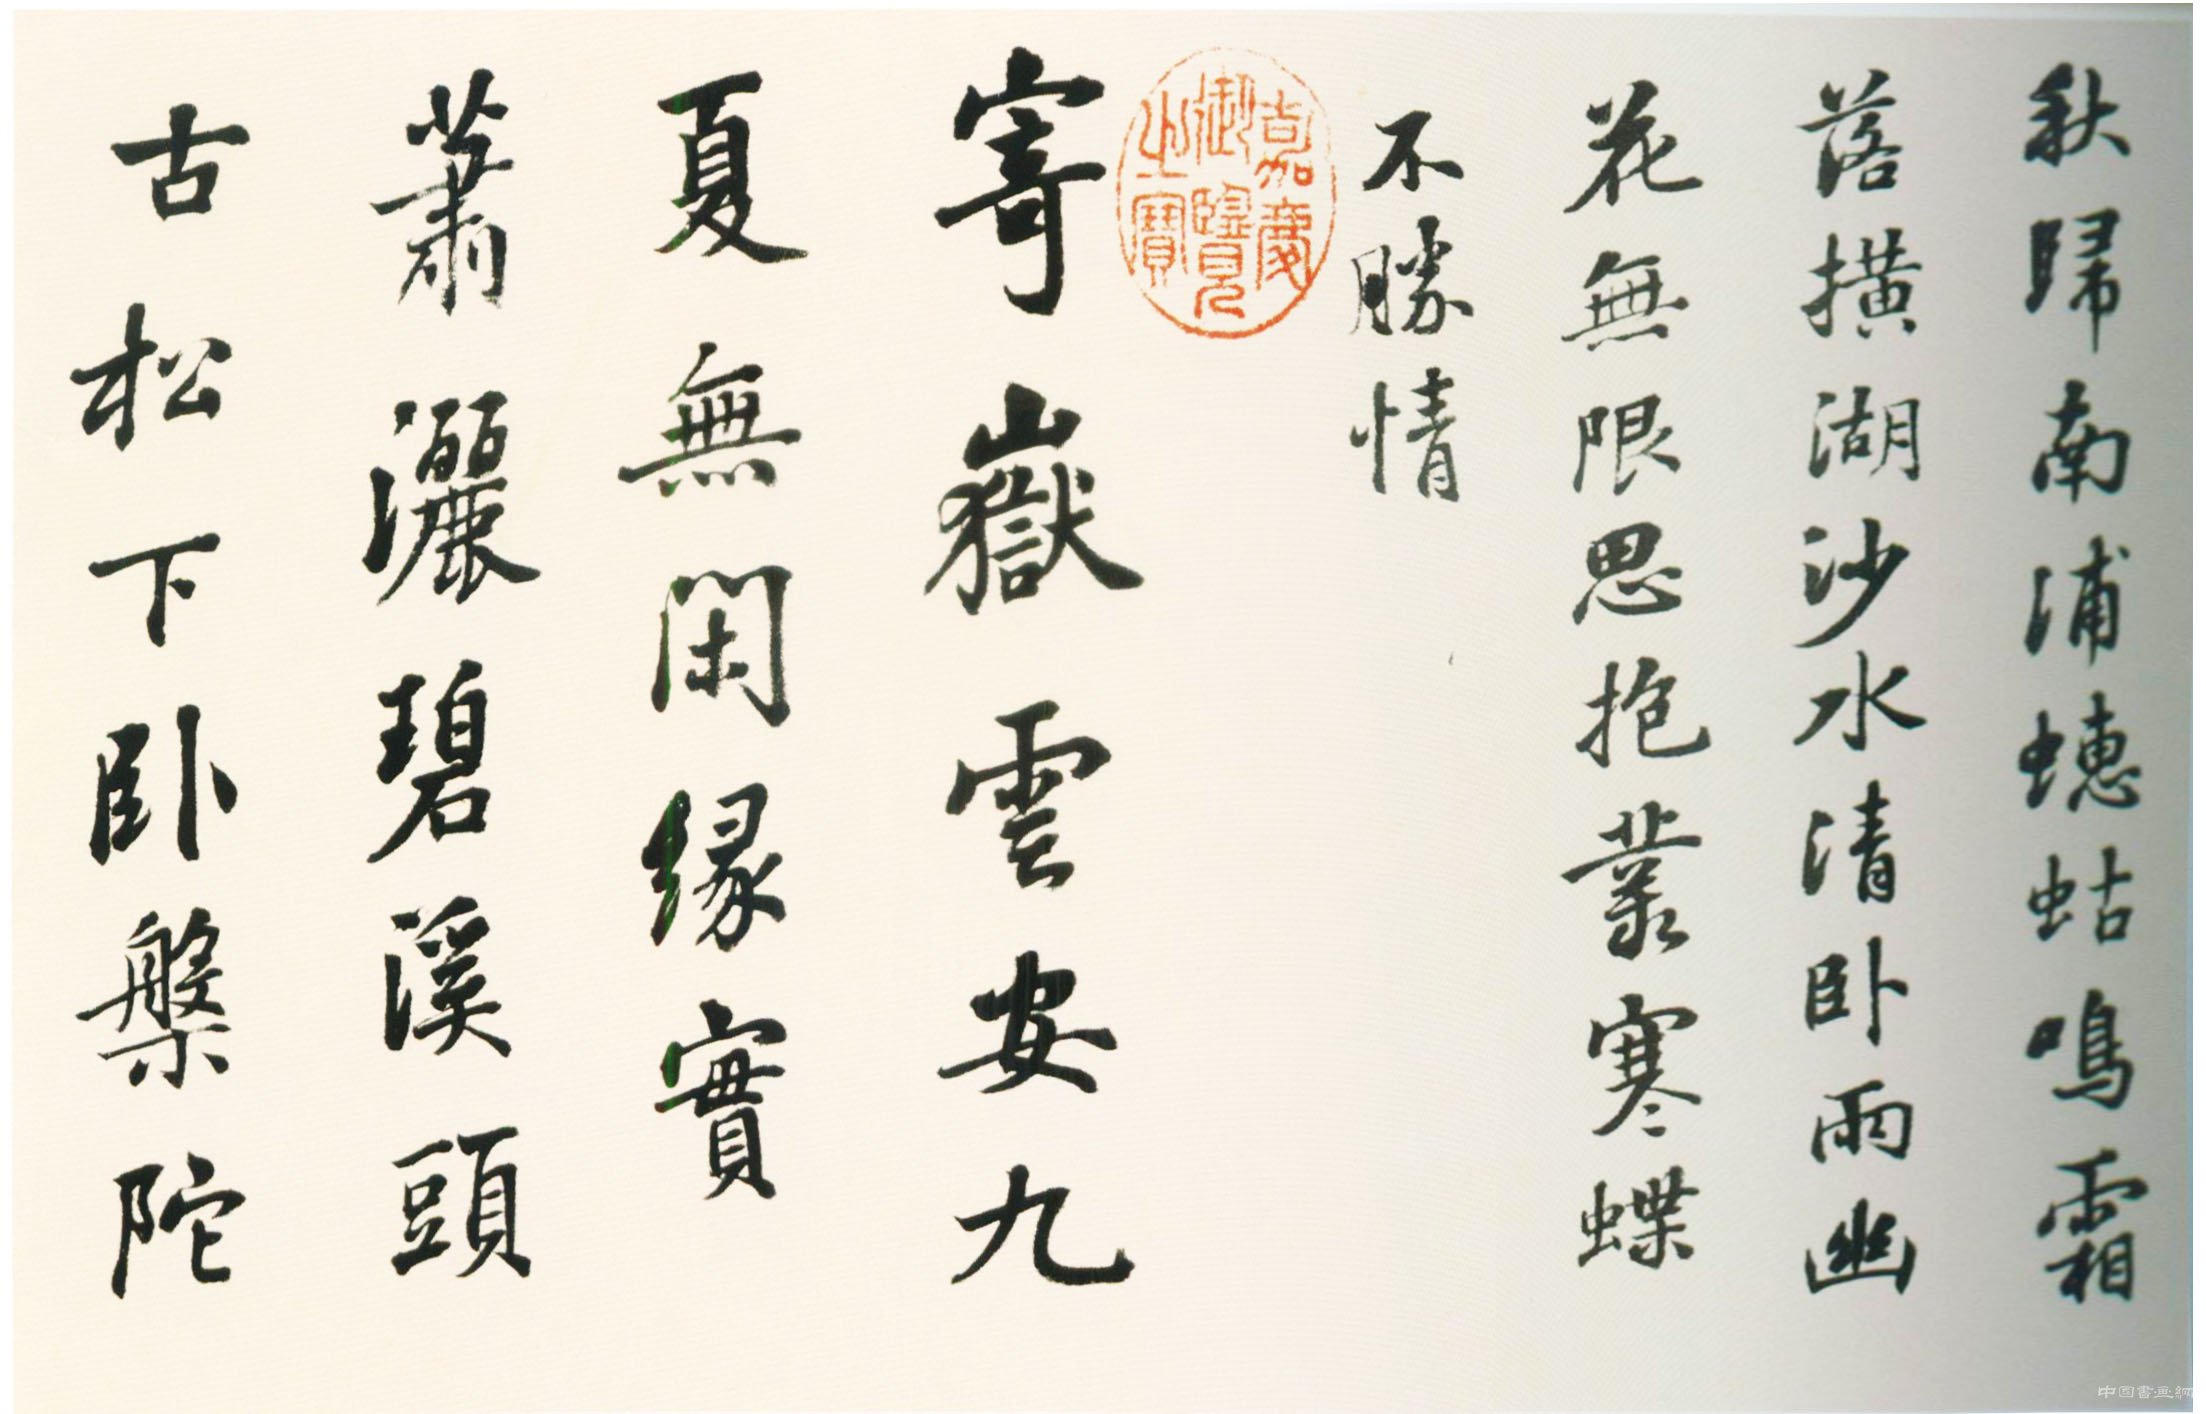 秋歸南浦蟪蛄鳴霜
落橫湖沙水清卧雨幽
花無限思抱叢寒蝶
不勝情
嘉慶
御覽
之寶
寄嶽雲安九
夏無閑緣實
蕭灑碧溪頭
古松下卧槃陀
中国書画網